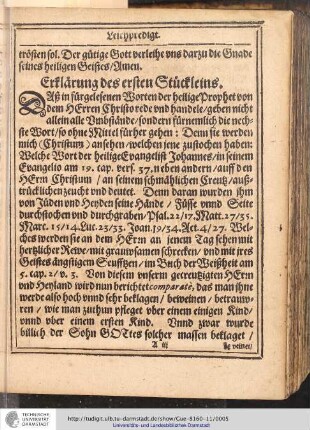 Leichpredigt.
trösten sol. Der gütige Gott verleihe vns darzu die Gnade
seines heiligen Geistes/Amen.
Erklärung des ersten Stückleins.
DAß in fürgelesenen Worten der heilige Prophet von
dem HErren Christo rede vnd handele/geben nicht
allein alle Vmbstände/sondern fürnemlich die nech-
ste Wort/so ohne Mittel fürher gehen: Denn sie werden
mich (Christum) ansehen/welchen jene zustochen haben:
Welche Wort der heilige Evangelist Johannes/in seinem
Evangelio am 19. cap. vers. 37. neben andern/auff den
HErn Christum/an seinem schmählichen Creutz/auß-
trücklichen zeucht vnd deutet. Denn daran wurden ihm
von Jüden vnd Heyden seine Hände/Füsse vnnd Seite
durchstochen vnd durchgraben/Psal.22/17. Matt.27/35.
Marc. 15/24. Luc.23/33. Joan.19/34. Act.4/27. Wel-
ches werden sie an dem HErn an jenem Tag sehen mit
hertzlicher Rewe/mit grawsamen schrecken/vnd mit ires
Geistes ängstigem Seufftzen/im Buch der Weißheit am
5. cap. 2/v. 3. Von diesem vnserm gecreutzigten HErrn
vnd Heyland wird nun berichtet comparatè, das man ihn
werde also hoch vnnd sehr beklagen/beweinen/betrauw-
ren/wie man zuthun pfleget vber einem einigen Kind/
vnnd vber einem ersten Kind. Vnnd zwar wurde
billich der Sohn GOttes solcher massen beklaget/
A iij
be weinet/
TECHNISCHE
UNIVERSITÄT
DARMSTADT
http://tudigit.ulb.tu-darmstadt.de/show/Gue-8160-11/0005
Universitäts- und Landesbibliothek Darmstadt